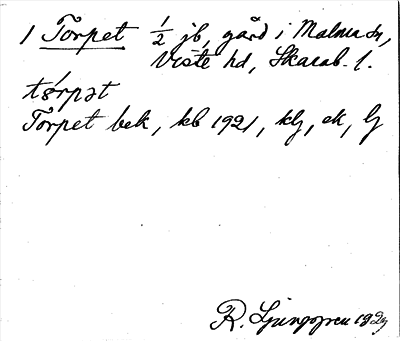 1 Torpet 1/2 jb, gård i Malma sn,
Viste hd, Skarab. l.
tǝrpǝt
Torpet bek, kb 1921, klj, ek, lj
R. Ljunggren